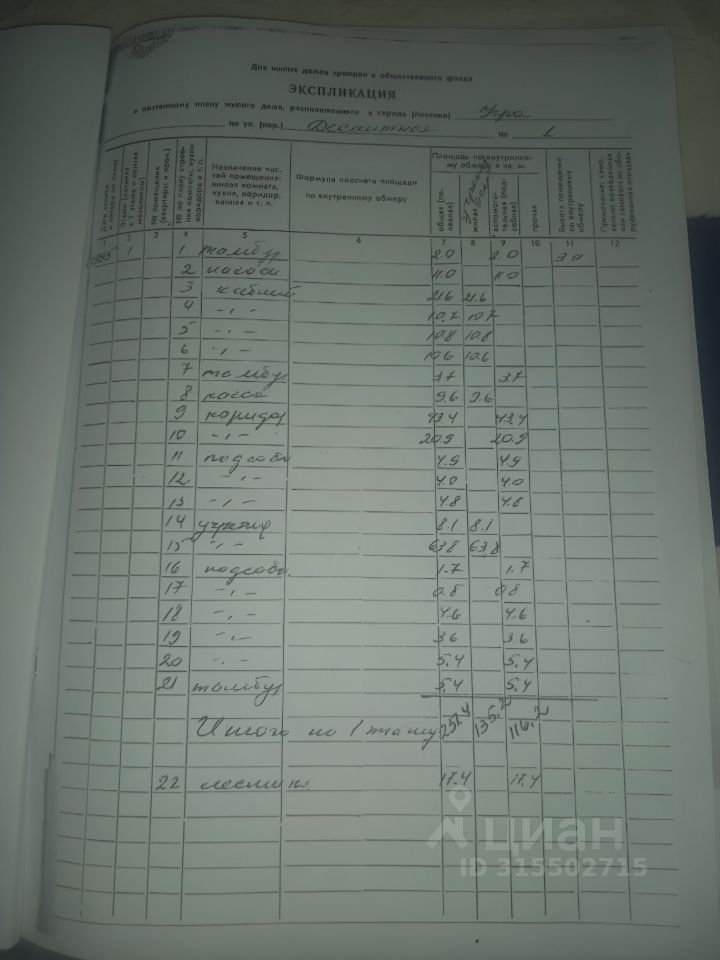 Для жилых домов граждан и общественного фонда
ЭКСПЛИКАЦИЯ
к поэтажному плану жилого дома, расположенного в городе (поселке) Угра
по ул. (пер.) Десантная № 1
Дата записи и литера по плану
Этажи (начиная с 1 этажа и кончая мезонином)
№ помещения (квартиры и проч.)
№ по плану строения комнаты, кухни коридора и т. п.
Назначение частей помещения: жилая комната, кухня, коридор, ванная и т. п.
Формула подсчета площади по внутреннему обмеру
Площадь по внутреннему обмеру в кв. м.
общая (полезная)
жилая
вспомогательная (подсобная)
прочая
Высота помещения по внутреннему обмеру
Примечание: самовольно возведенная или самовольно оборудованная площадь
1 2 3 4 5 6 7 8 9 10 11 12
1 1 тамбур 2.0 2.0 3.0
2 11.0 11.0
3 кабинет 21.6 21.6
4 -„- 10.7 10.7
5 -„- 10.8 10.8
6 -„- 10.6 10.6
7 тамбур 3.7 3.7
8 касса 9.6 9.6
9 коридор 43.4 43.4
10 -„- 20.9 20.9
11 подсобн 4.9 4.9
12 -„- 4.0 4.0
13 -„- 4.8 4.8
14 8.1 8.1
15 -„- 63.8 63.8
16 подсобн. 1.7 1.7
17 -„- 0.8 0.8
18 -„- 4.6 4.6
19 -„- 3.6 3.6
20 -„- 5.4 5.4
21 тамбур 5.4 5.4
Итого по 1 этажу: 251.4 135.2 116.2
22 лестница 17.4 17.4
циан
ID 315502715